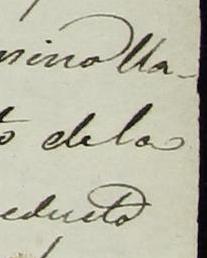 mino lla-
o de la
educto